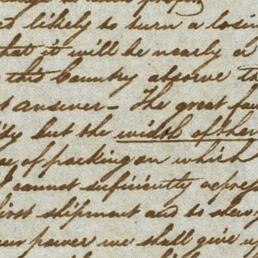 not likely to turn a losin
that it will be nearly a
this Country above th
answer - The great fau
but the width of ther
of packing on which
cannot sufficiently expres
first shipment and so shew
power we shall give u